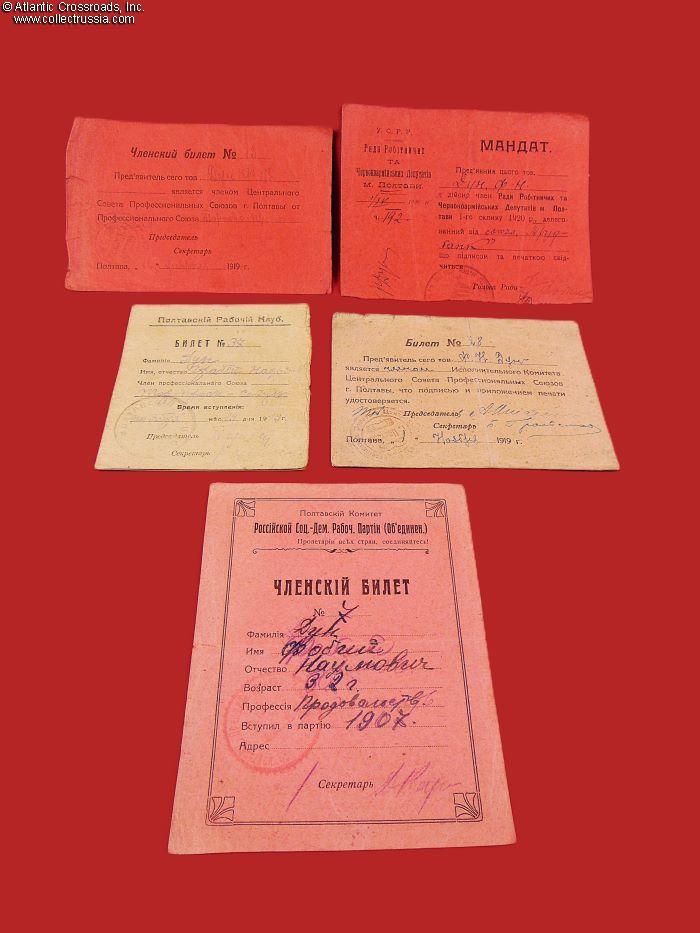 © Atlantic Crossroads, Inc.
www.collectrussia.com
Членский билет №
Пред'явитель сего тов
является членом Центрального
Совета Профессиональных Союзов г. Полтавы от
Профессионального Союза
Председатель
Секретарь
Полтава, 1919 г.
У. С. Р. Р.
Рада Робітничих
ТА
Червоноармійських Депутатів
м. Полтави
ч. 192
МАНДАТ.
Пред'явник цього тов.
Дун Ф. Н.
є дійсир член Ради Робітничих та
Червоноармійських Депутатів м. Пол-
тави 1-го склику 1920 р., делего-
ваний від союза
що підписом та печаткою свід-
читься.
Голова Ради
Полтавскій Рабочій Клуб.
БИЛЕТ № 32
Фамилія Дун
Имя, отчество
Член профессиональнаго Союза
Время вступленія:
Председатель
Секретарь
Билет № 28
Пред'явитель сего тов Ф. Н. Дун
является членом Исполнительного Комитета
Центрального Совета Профессиональных Союзов
г. Полтавы, что подписью и приложением печати
удостоверяется.
Председатель
Секретарь
Полтава, „ ) " Ноября 1919 г.
Полтавскій Комитет
Россійской Соц.-Дем. Рабоч. Партіи (Об'единен.)
Пролетаріи всѣх стран, соединяйтесь!
ЧЛЕНСКІЙ БИЛЕТ
№ 7
Фамилія Дун
Имя Фобий
Отчество Наумович
Возраст 32 г.
Профессія Продовольств.
Вступил в партію 1907.
Адрес
Секретарь